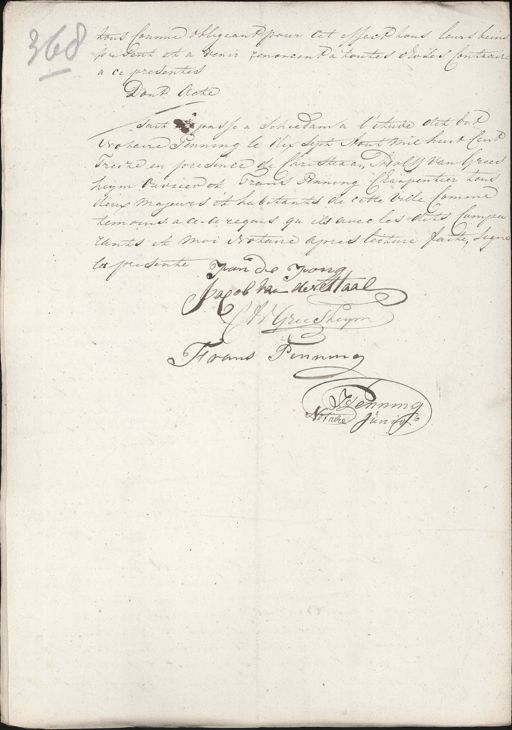 368
tous comme obligeant pour cet effect tous leurs biens
present et a venir renoncent a toutes choses Contraire
a ce presentes
Dont Acte
fait passe a Schiedam a l'étude dit
Notaire Penning le dix sept Aout mil huit Cent
Treize en presence de Christiaan Wolff van Grees
heym Ouvrier et Frans Penning Charpentier tous
deux majeurs et habitants de cette ville Comme
temoins a ce requis qu ils avec les dits Compa
rants et moi Notaire apres lecture faite, signe
la presente
Jan de Jong
Jacob van der Staal
C W V Greesheym
Frans Penning
Penning
Notaire Junior